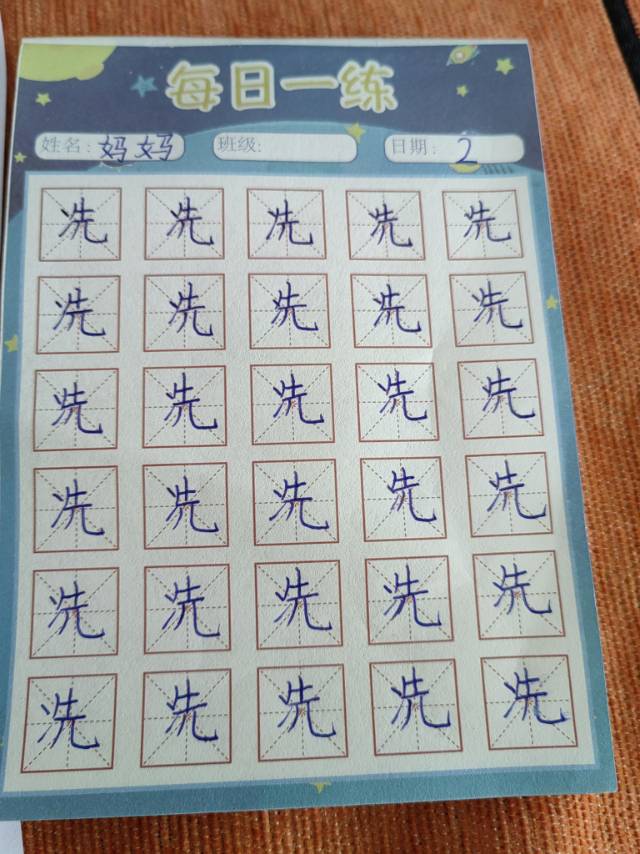 每日一练
姓名: 妈妈 班级: 日期: 2
冼 冼 冼 冼 冼
冼 冼 冼 冼 冼
冼 冼 冼 冼 冼
冼 冼 冼 冼 冼
冼 冼 冼 冼 冼
冼 冼 冼 冼 冼